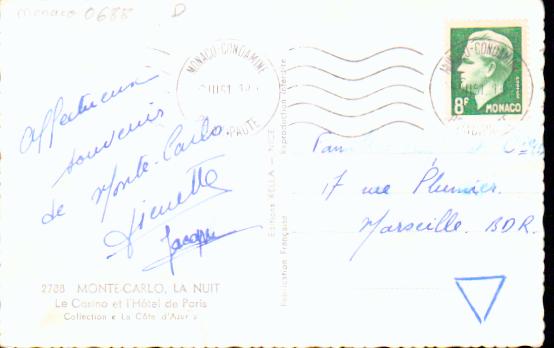 Monaco 0688 D
MONACO-CONDAMINE
MONACO-CONDAMINE
8F MONACO
Affectueux
souvenir
de Monte-Carlo
Jacques
17 rue Plumier.
Marseille. BDR.
Editions RELLA - NICE
Reproduction Interdite
Réalisation Française
2788 MONTE-CARLO, LA NUIT
Le Casino et l'Hôtel de Paris
Collection « La Côte d'Azur »